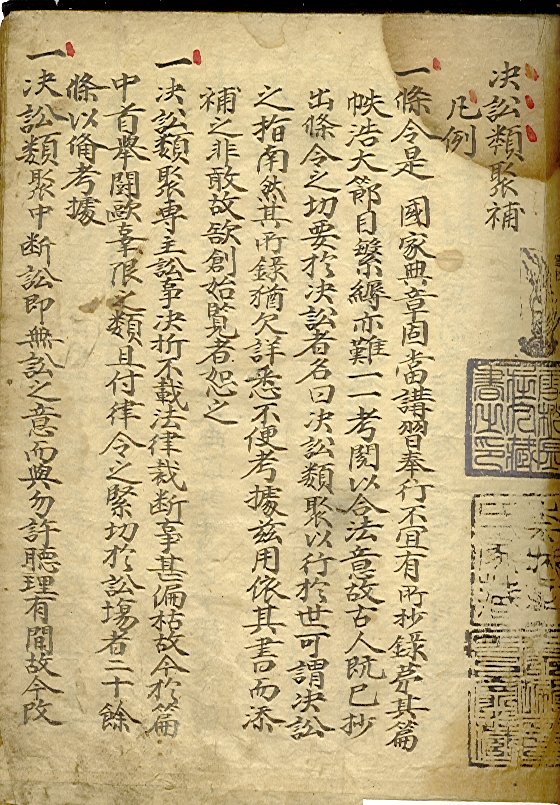 决訟類聚補
凡例
一條令是 國家典章固當講習奉行不宜有所抄錄苐其篇
帙浩大節目繁縟亦難一一考閱以合法意故古人旣已抄
出條令之切要於决訟者名曰决訟類聚以行於世可謂决訟
之指南然其所錄猶欠詳悉不便考據玆用依其書而添
補之非敢故欲創始覽者恕之
一决訟類聚專主訟事决折不載法律裁斷事甚偏枯故今於篇
中首擧鬪歐辜限之類且付律令之緊切於訟場者二十餘
條以備考據
一决訟類聚中断訟即無訟之意而與勿許聽理有間故今改